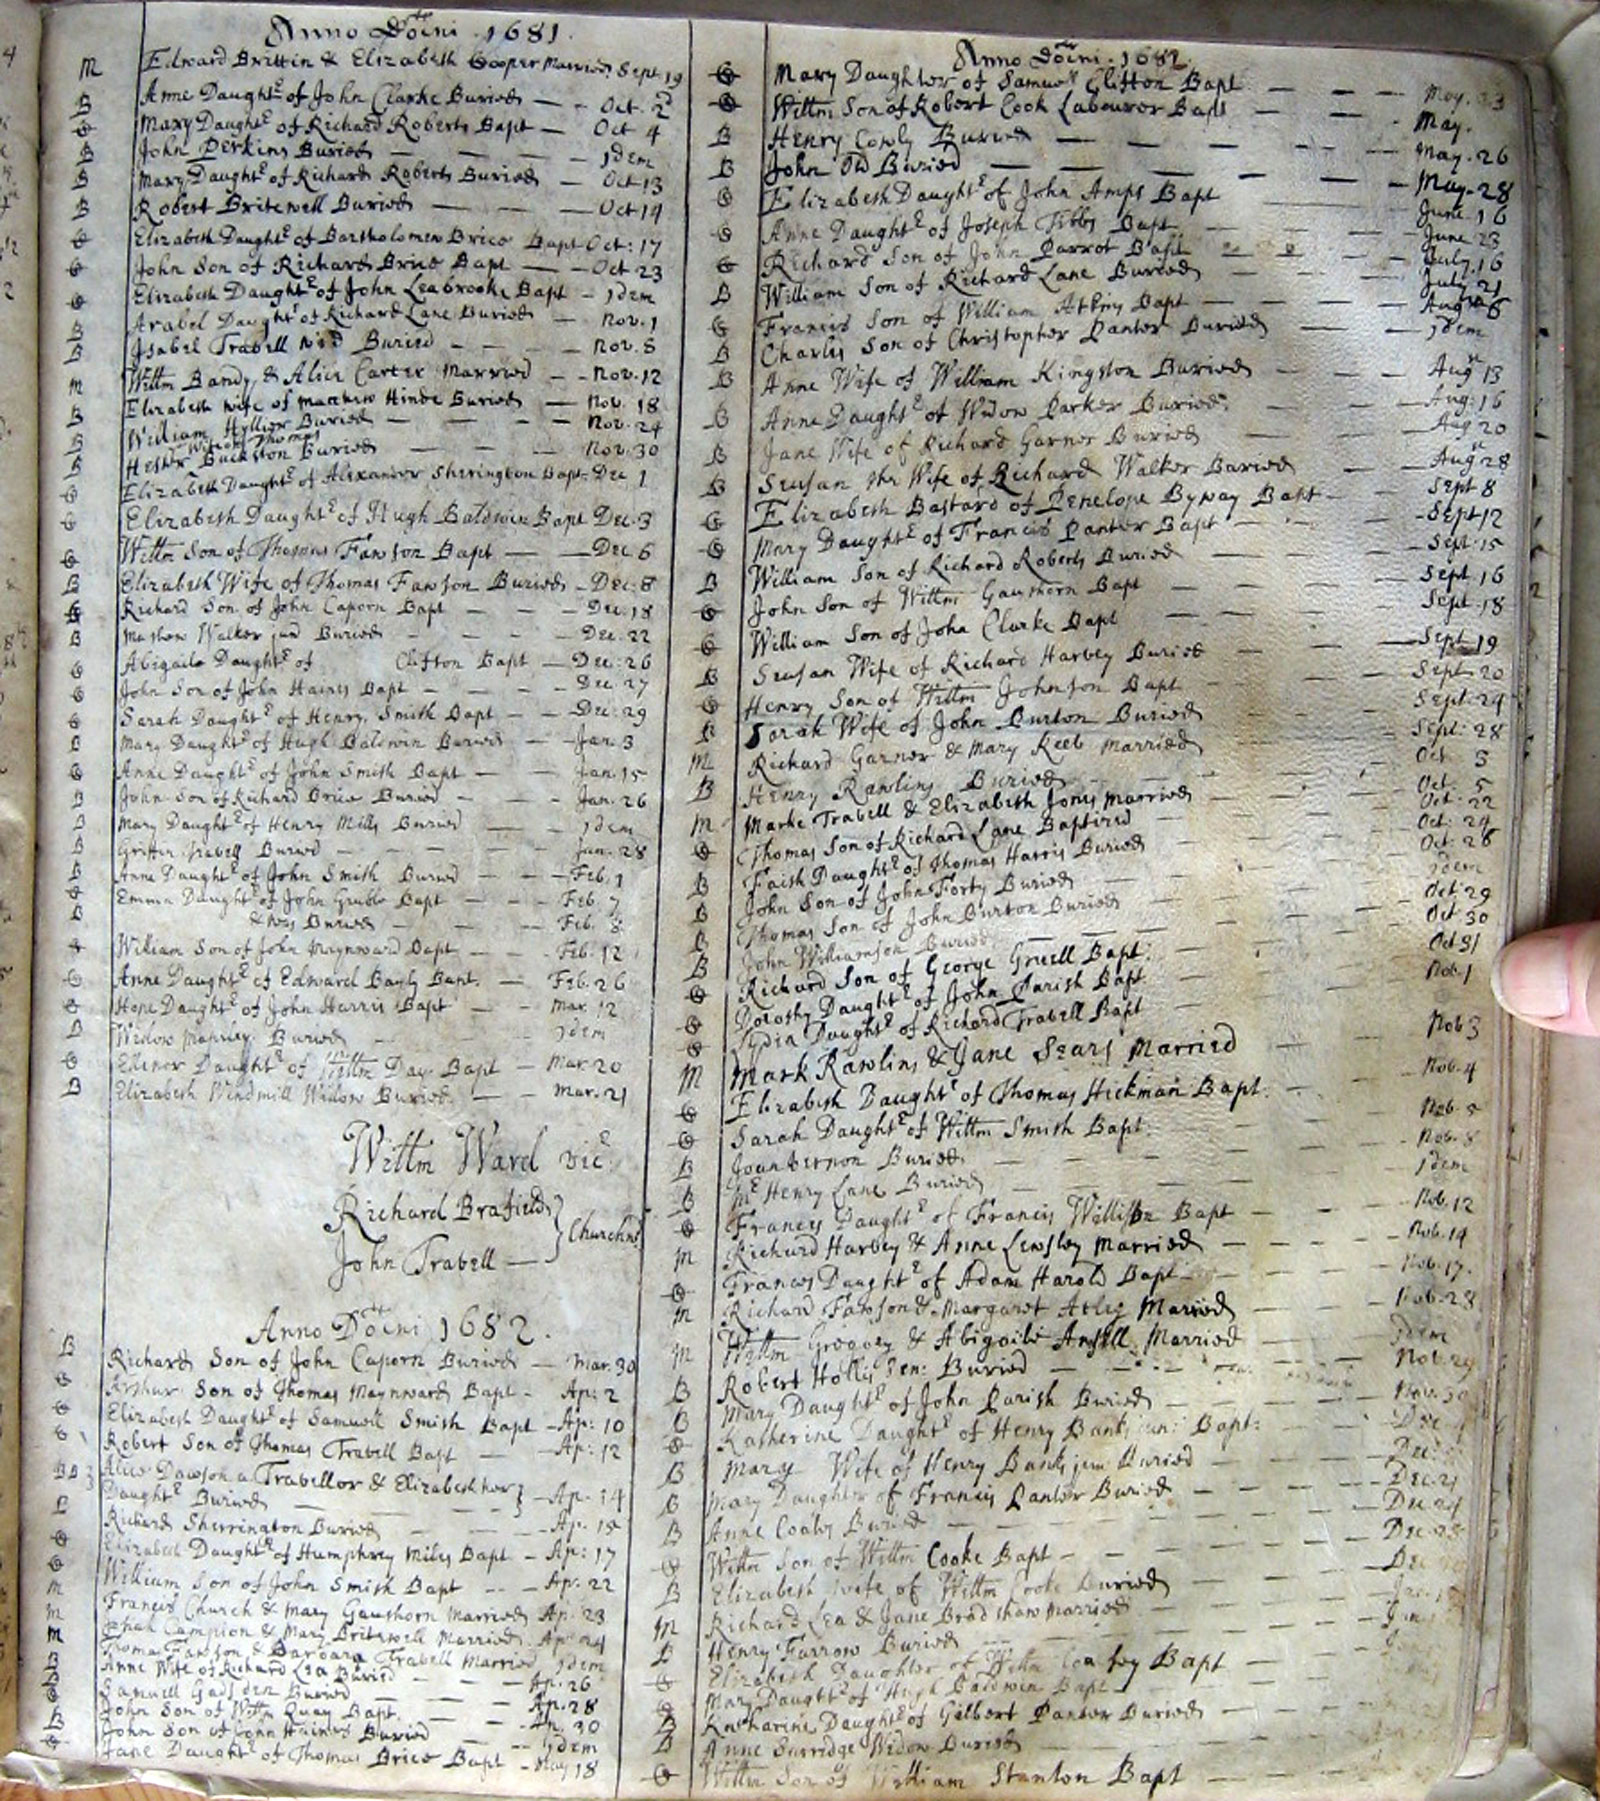 Anno Doini 1681.
M Edward Brittin & Elizabeth Cooper Married Sept 19
B Anne Daught of John Clarke Buried — Oct. 2
Mary Daught of Richard Roberts Bapt — Oct 4
B John Perkins Buried — Idem
B Mary Daught of Richard Roberts Buried — Oct 13
B Robert Britewell Buried — Oct 14
Elizabeth Daught of Bartholomew Brice Bapt Oct: 17
John Son of Richard Brice Bapt — Oct 23
Elizabeth Daught of John Leabrooke Bapt — Idem
B Arabel Daught of Richard Lane Buried — Nov. 1
B Isabel Trabell wid Buried — Nov. 8
M Willm Bandy, & Alice Carter Married — Nov. 12
B Elizabeth wife of matthew Hinde Buried — Nov. 18
B William Hyllier Buried — Nov. 24
B Hester Wife of Thomas Buckston Buried — Nov. 30
Elizabeth Daught of Alexander Sherington Bapt. Dec 1
Elizabeth Daught of Hugh Baldwin Bapt Dec. 3
Willm Son of Thomas Fawson Bapt — Dec 6
B Elizabeth Wife of Thomas Fawson Buried — Dec: 8
Richard Son of John Caporn Bapt — Dec. 18
B Mathew Walker Buried — Dec. 22
Abigaile Daught of Clifton Bapt — Dec: 26
John Son of John Haines Bapt — Dec 27
Sarah Daught of Henry Smith Bapt — Dec: 29
B Mary Daught of Hugh Baldwin Buried — Jan. 3
Anne Daught of John Smith Bapt — Jan. 15
B John Son of Richard Brice Buried — Jan. 26
B Mary Daught of Henry Mills Buried — Idem
B Trabell Buried — Jan. 28
B Anne Daught of John Smith Buried — Feb. 1
Emma Daught of John Grubbe Bapt — Feb. 7
B & was Buried — Feb. 8
William Son of John Maynward Bapt — Feb. 12
Anne Daught of Edward Bayly Bapt. — Feb. 26
Hope Daught of John Harris Bapt — Mar. 12
B Widow Buried — Idem
Ellenor Daught of Willm Day Bapt — Mar. 20
B Elizabeth Windmill Widow Buried — Mar. 21
Willm Ward vic.
Richard Brafield
John Trabell — } Churchw.
Anno Doini 1682.
B Richard Son of John Caporn Buried — Mar. 30
Arthur Son of Thomas Maynward Bapt — Ap: 2
Elizabeth Daught of Samuell Smith Bapt — Ap: 10
Robert Son of Thomas Trabell Bapt — Ap: 12
BB Alice Dawson a Trabellor & Elizabeth her
Daught Buried — Ap. 14
B Richard Sherrington Buried — Ap. 15
Elizabeth Daught of Humphrey Miles Bapt — Ap: 17
William Son of John Smith Bapt — Ap. 22
M Francis Church & Mary Gawthorn Married Ap: 23
M Campion & Mary Britewell Married Ap: 24
M Thomas Fawson & Barbara Trabell Married Idem
B Anne Wife of Richard Lea Buried — Ap. 26
Samuell Gadsden Buried — Ap. 28
John Son of Willm Quay Bapt. — Ap. 30
B John Son of John Haines Buried — Idem
Jane Daught of Thomas Brice Bapt — May 18
Anno Doini 1682.
Mary Daughter of Samuel Clifton Bapt — May. 23
Willm Son of Robert Cook Labourer Bapt — May.
B Henry Cowly Buried — May. 26
B John Old Buried — May. 28
Elizabeth Daught of John Amps Bapt — June 16
Anne Daught of Joseph Tibbs Bapt — June 23
Richard Son of John Parrot Bapt — July. 16
B William Son of Richard Lane Buried — July 21
Francis Son of William Atkins Bapt — Aug 6
B Charles Son of Christopher Panter Buried — Idem
B Anne Wife of William Kingston Buried — Aug 13
B Anne Daught of Widow Parker Buried — Aug: 16
B Jane Wife of Richard Garner Buried — Aug 20
B Seusan the Wife of Richard Walker Buried — Aug 28
Elizabeth Bastard of Penelope Byway Bapt — Sept 8
Mary Daught of Francis Panter Bapt — Sept 12
B William Son of Richard Roberts Buried — Sept. 15
John Son of Willm Gawthorn Bapt — Sept. 16
William Son of John Clarke Bapt — Sept. 18
B Seusan Wife of Richard Harvey Buried — Sept. 19
Henry Son of Willm Johnson Bapt — Sept. 20
B Sarah Wife of John Burton Buried — Sept: 24
M Richard Garner & Mary Keeb married — Sept: 28
B Henry Rawlins Buried — Oct 3
M Marke Trabell & Elizabeth Jones Married — Oct. 5
Thomas Son of Richard Lane Baptized — Oct: 22
B Faith Daught of Thomas Harris Buried — Oct: 24
B John Son of John Forty Buried — Oct: 26
B Thomas Son of John Burton Buried — Idem
B John Williamson Buried — Oct: 29
Richard Son of George Gruell Bapt: — Oct 30
Dorothy Daught of John Parish Bapt. — Oct 31
Lydia Daught of Richard Trabell Bapt — Nob. 1
M Mark Rawlins & Jane Sears Married — Nob 3
Elizabeth Daught of Thomas Hickman Bapt: — Nob. 4
Sarah Daught of Willm Smith Bapt: — Nob. 5
B Joan Vernon Buried — Nob. 8
B Mr Henry Lane Buried — Idem
Frances Daught of Francis Bapt — Nob. 12
M Richard Harvey & Anne Lewsley Married — Nob. 14
Frances Daught of Adam Harold Bapt — Nob. 17.
M Richard Fawson & Margaret Married — Nob. 23
M Willm Gregory & Abigaile Married — Idem
B Robert Hollis Sen: Buried — Nob. 29
B Mary Daught of John Parish Buried — Nov. 30
Katherine Daught of Henry Banks iun: Bapt: — Dec.
B Mary Wife of Henry Banks jun Buried — Dec.
B Mary Daughter of Francis Panter Buried — Dec. 21
B Anne Coales Buried — Dec
Willm Son of Willm Cooke Bapt — Dec
B Elizabeth wife of Willm Cooke Buried — Dec
M Richard Lea & Jane Bradshaw Married — Jan.
B Henry Farrow Buried — Jan
Elizabeth Daughter of Willm Bapt
Mary Daught of Hugh Baldwin Bapt
B Katharine Daught of Gilbert Panter Buried
B Anne Surridge Widow Buried
Willm Son of William Stanton Bapt